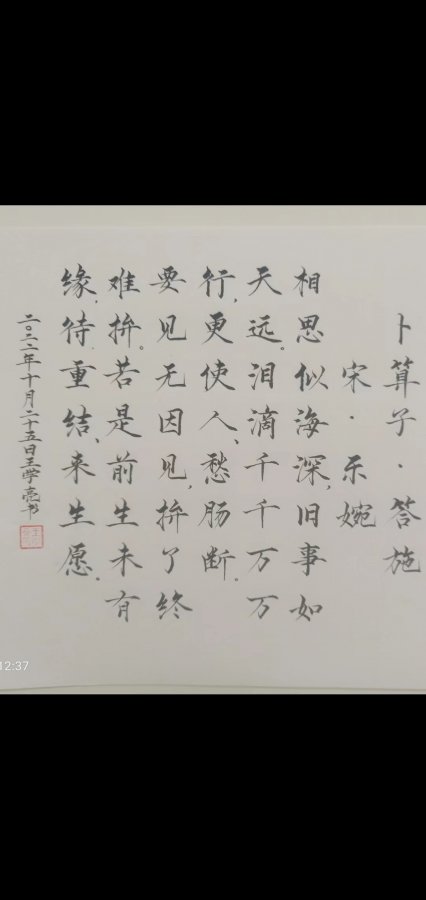 卜算子·答施
宋·乐婉
相思似海深,旧事如
天远。泪滴千千万万
行,更使人、愁肠断。
要见无因见,拚了终
难拚。若是前生未有
缘,待重结、来生愿。
二〇二二年十月二十五日王学亮书
12:37